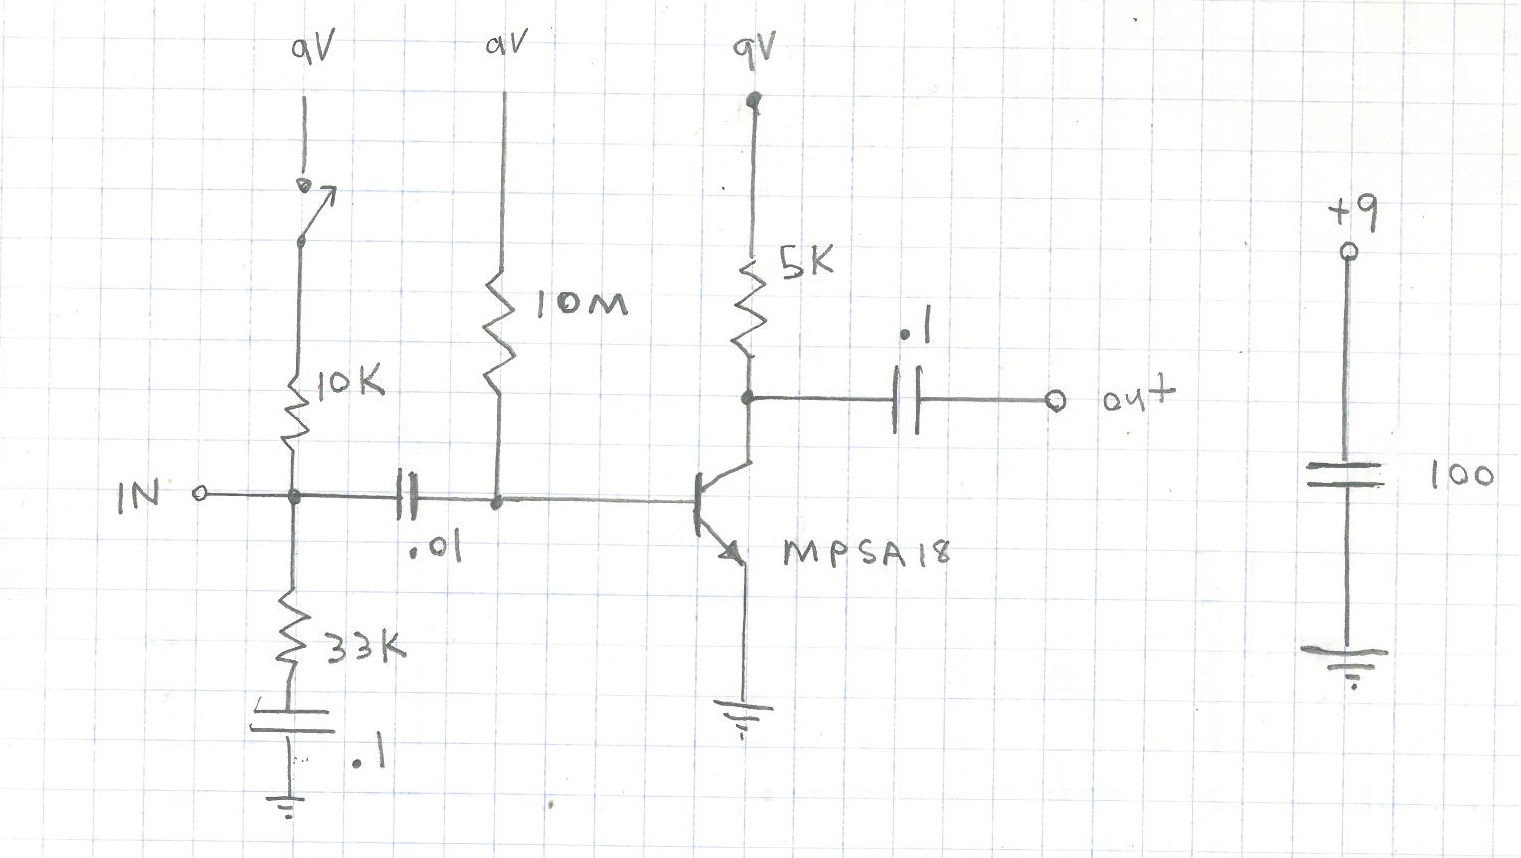 9V
9V
9V
+9
5K
10M
.1
10K
out
IN
100
.01
MPSA18
33K
.1